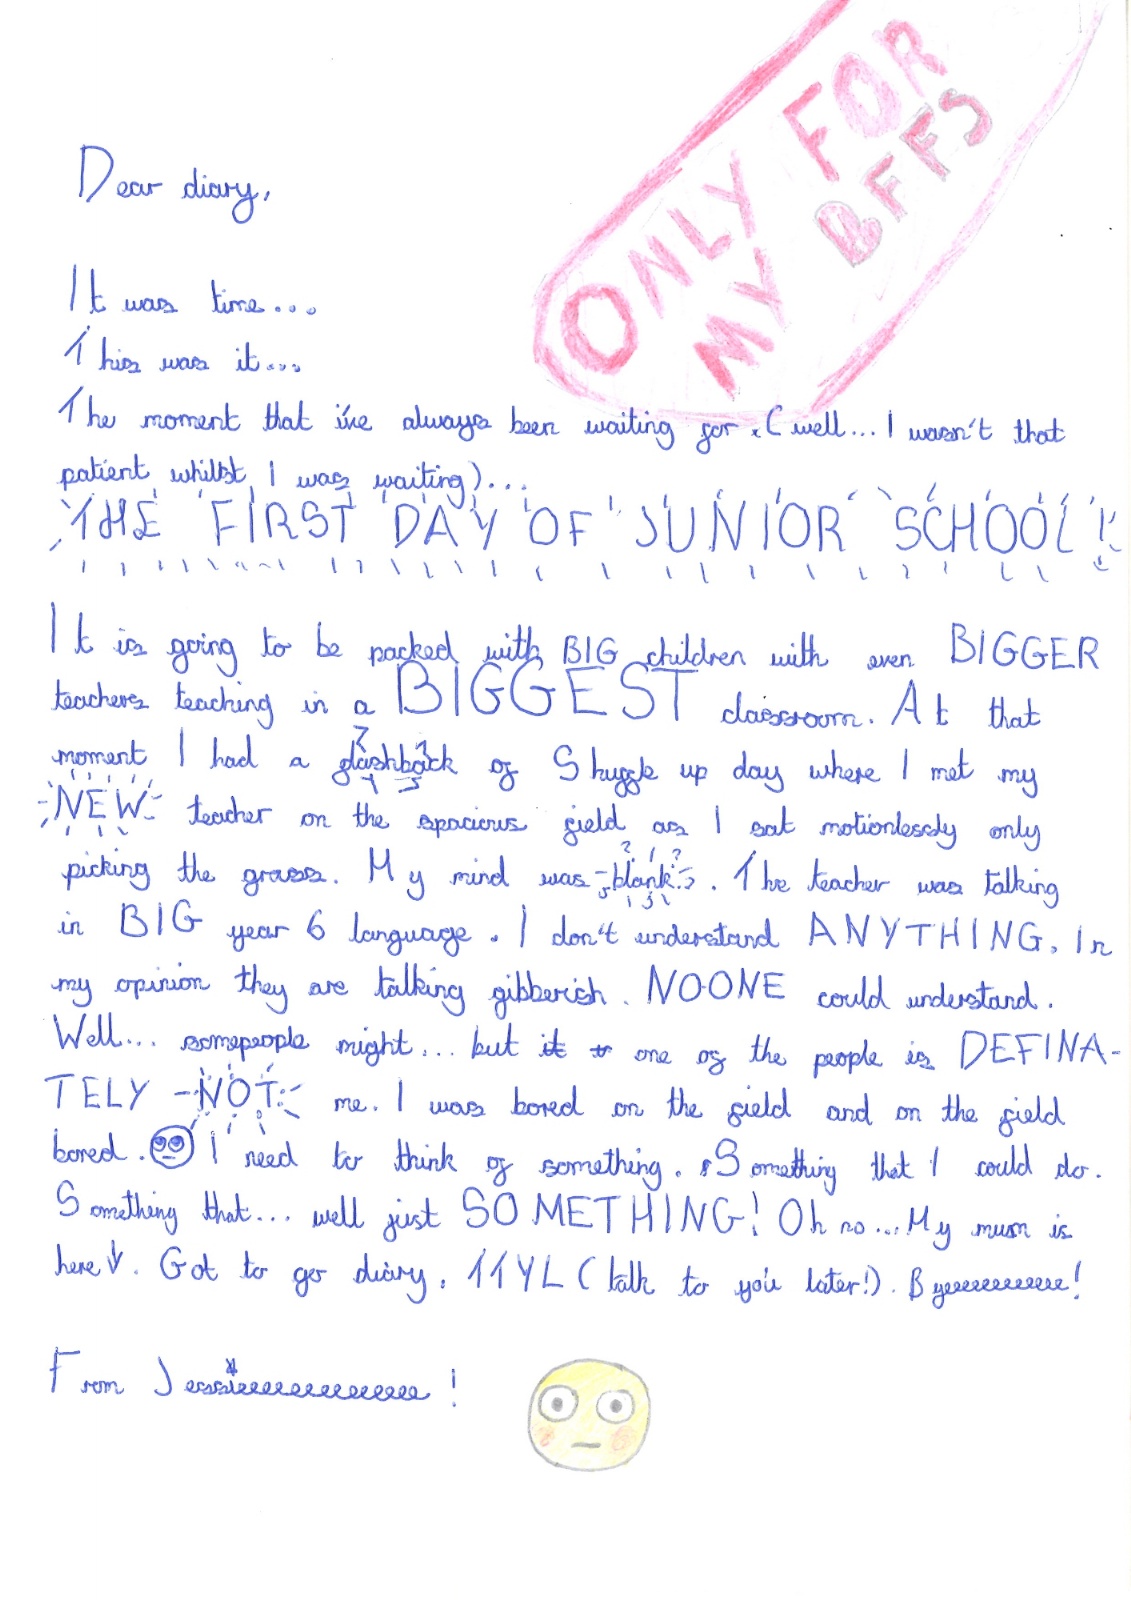 ONLY FOR
MY BFFS
Dear diary,
It was time...
This was it...
The moment that i've always been waiting for. (well... I wasn't that
patient whilst I was waiting)...
THE FIRST DAY OF JUNIOR SCHOOL!
It is going to be packed with BIG children with even BIGGER
teachers teaching in a BIGGEST classroom. At that
moment I had a flashback of Shuggle up day where I met my
NEW teacher on the spacious field as I sat motionlessly only
picking the grass. My mind was blank. The teacher was talking
in BIG year 6 language. I don't understand ANYTHING. In
my opinion they are talking gibberish. NO-ONE could understand.
Well... somepeople might... but it one of the people is DEFINA-
TELY NOT me. I was bored on the field and on the field
bored. I need to think of something. Something that I could do.
Something that... well just SOMETHING! Oh no... My mum is
here. Got to go diary. TTYL (talk to you later!). Byeeeeeeeeeeee!
From Jessieeeeeeeeeeeeeeee!